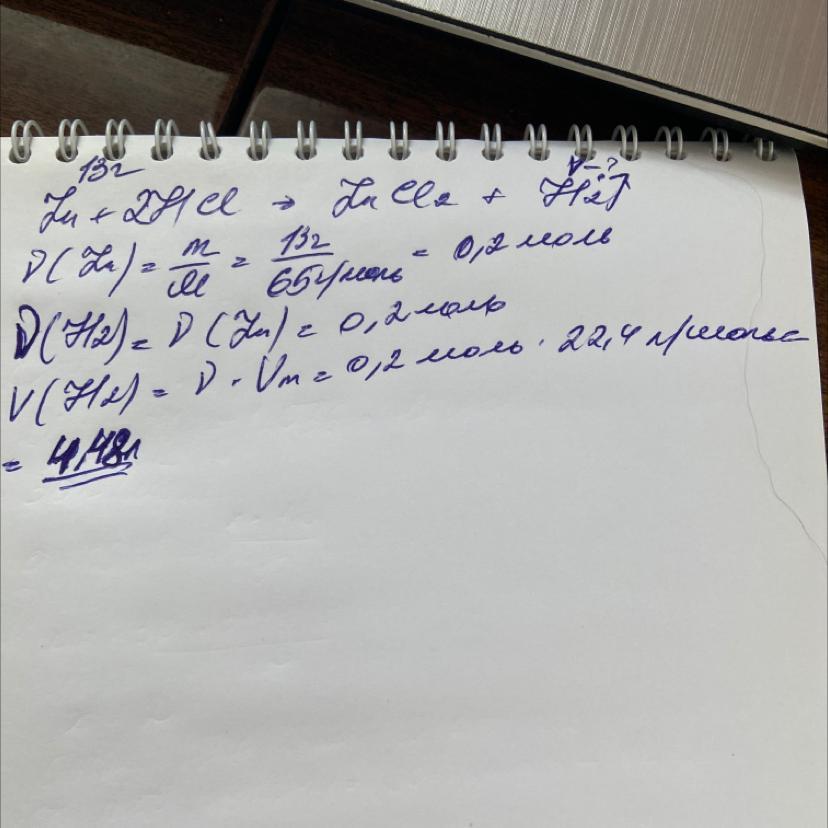 13г V-?
Zn + 2HCl → ZnCl2 + H2↑
ν(Zn) = m/M = 13г/65г/моль = 0,2 моль
ν(H2) = ν(Zn) = 0,2 моль
V(H2) = ν · Vm = 0,2 моль · 22,4 л/моль =
= 4,48л